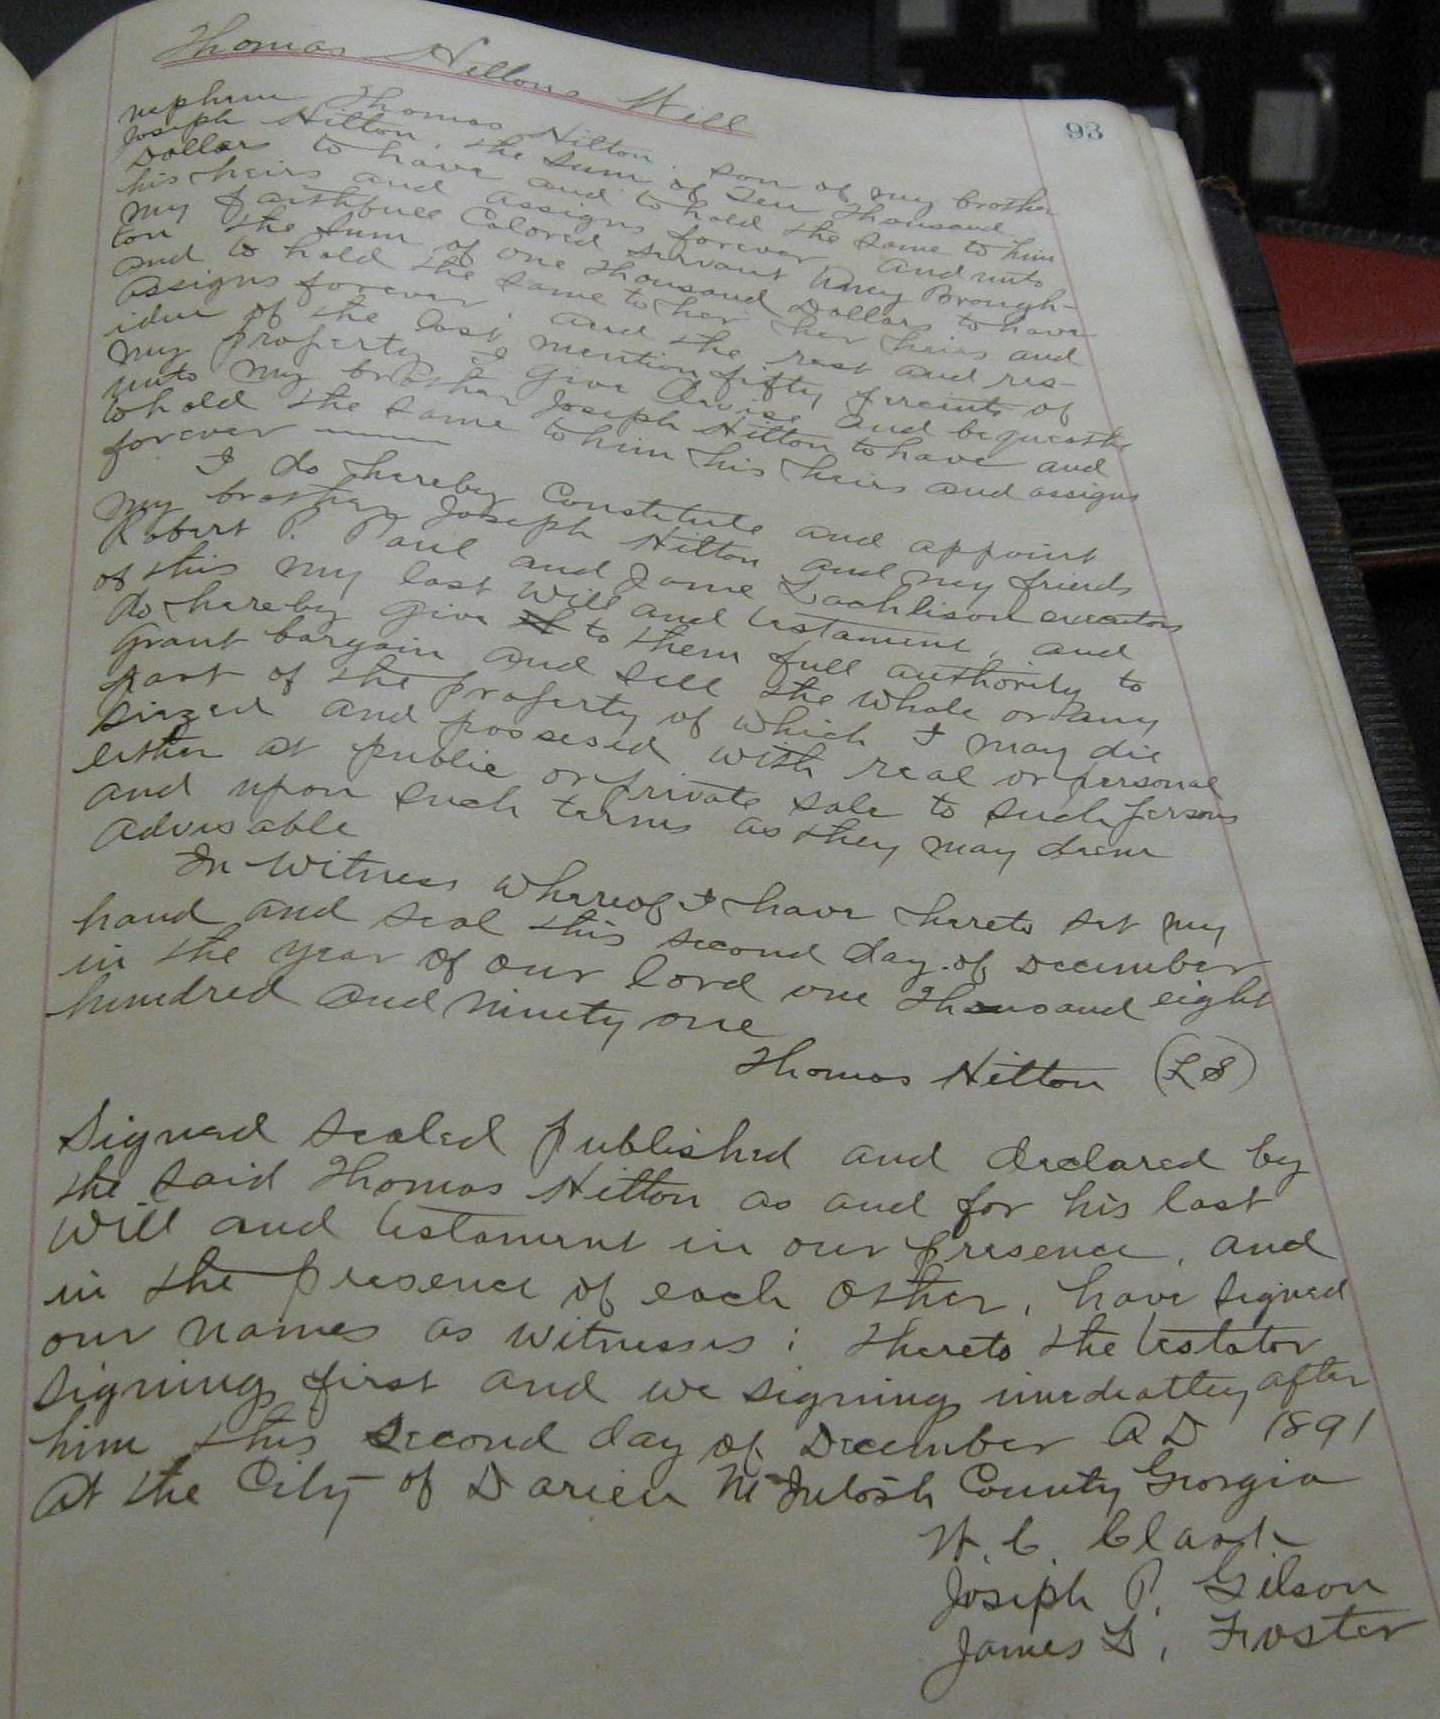 Thomas Hiltons Will
93
nephew Thomas Hilton, son of my brother
Joseph Hilton, the sum of Ten Thousand
Dollars to have and to hold the same to him
his heirs and assigns forever, and unto
my faithfull Colored servant Amey Brough-
ton the sum of one thousand Dollars to have
and to hold the same to her, her heirs and
assigns forever, and the rest and res-
idue of the last mention fifty percents of
my property I give devise and bequeathe
unto my brother Joseph Hilton to have and
to hold the same to him his heirs and assigns
forever
I do hereby Constitute and appoint
my brother Joseph Hilton and my friends
Robert P. Paul and Jame Lachlison executors
of this my last Will and testament, and
do hereby give to them full authority to
grant bargain and sell the whole or any
part of the property of which I may die
siezed and possesed with real or personal
either at public or private sale to such persons
and upon such terms as they may deem
advisable
In Witness whereof I have hereto set my
hand and seal this second day of December
in the year of our lord one thousand eight
hundred and ninety one
Thomas Hilton (LS)
Signed sealed published and declared by
the said Thomas Hilton as and for his last
Will and testament in our presence, and
in the presence of each other, have signed
our names as witnesses; thereto the testator
signing first and we signing imediatley after
him this second day of December AD 1891
At the City of Darien McIntosh County Georgia
W. C. Clark
Joseph P. Gilson
James L. Foster